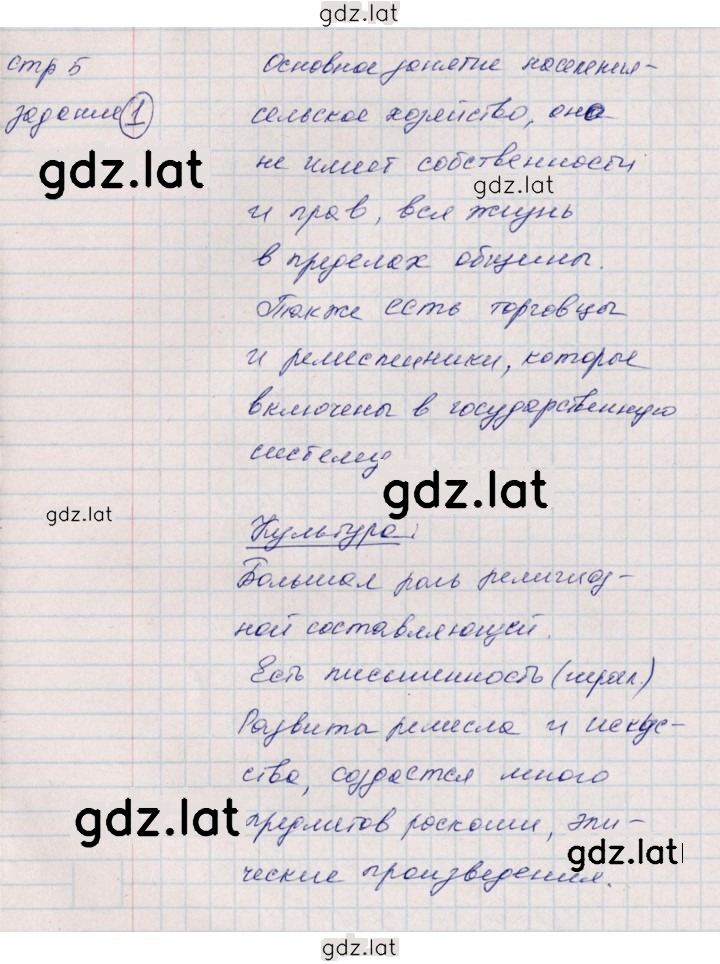 gdz.lat
стр 5
задание 1
Основное занятие населения-
сельское хозяйство, оно
gdz.lat
не имеет собственности
gdz.lat
и прав, вся жизнь
в пределах общины.
Также есть торговцы
и ремесленники, которые
включены в государственную
систему
gdz.lat
gdz.lat
Культура:
Большая роль религиоз-
ной составляющей.
Есть письменность (иерог.)
Развита ремесла и искус-
ства, создается много
gdz.lat
предметов роскоши, эпи-
gdz.lat
ческие произведения.
gdz.lat